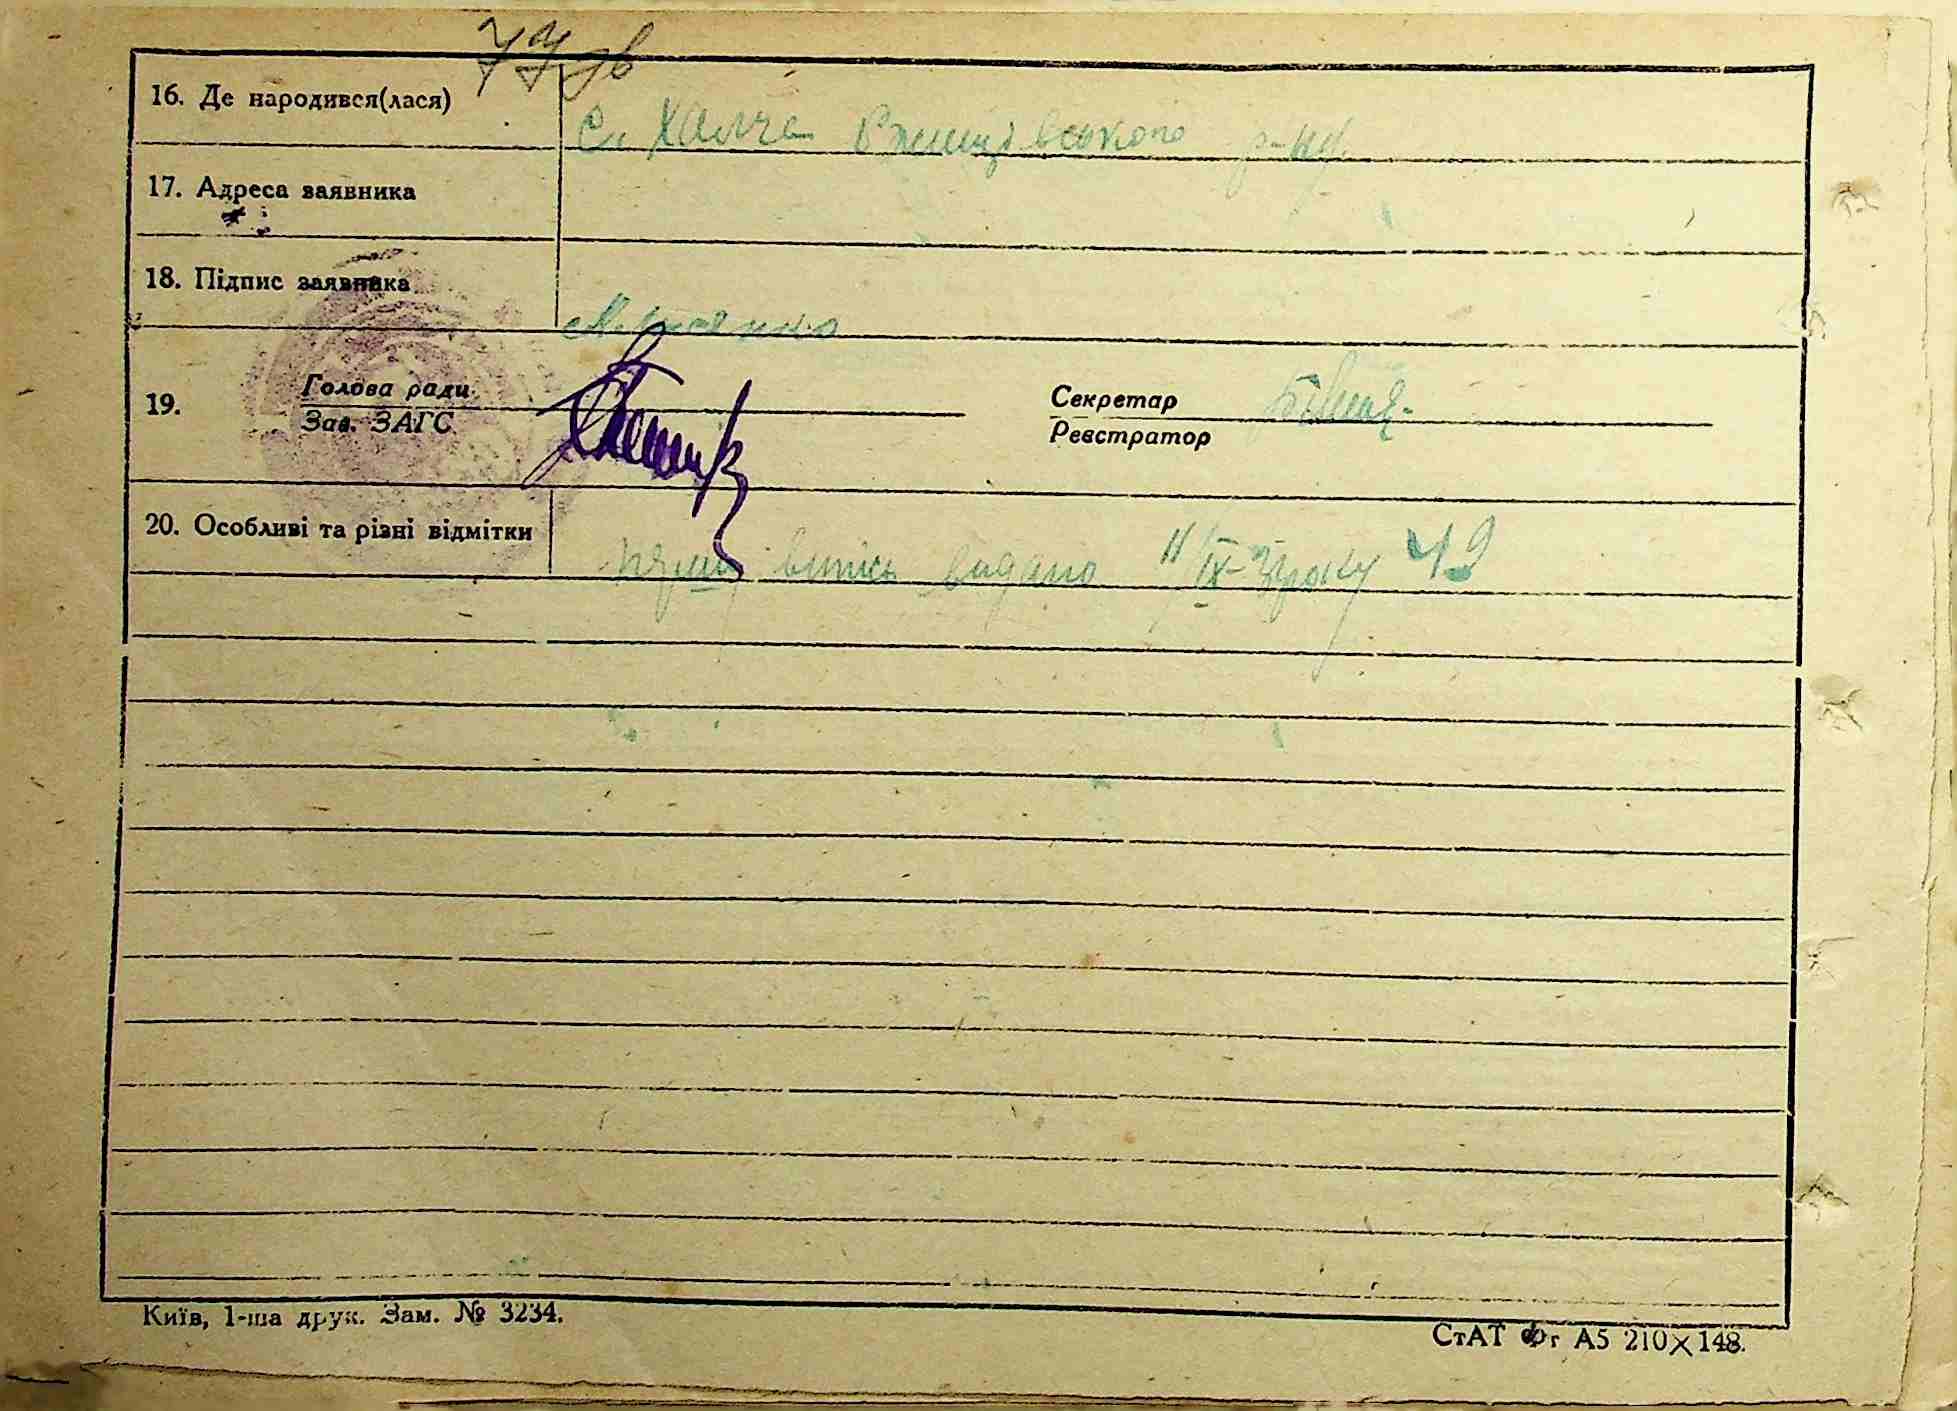 77 зв
16. Де народився(лася) с. Халча Ржищівського р-ну.
17. Адреса заявника
18. Підпис заявника
19. Голова ради Секретар
Зав. ЗАГС Реєстратор
20. Особливі та різні відмітки витяг видано "/IX-3 року 49
Київ, 1-ша друк. Зам. № 3234.
СтАТ Фг А5 210×148.